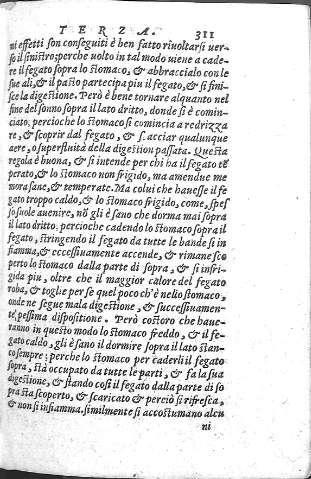 TERZA. 311
ni effetti son conseguiti è ben fatto riuoltarsi uer-
so il sinistro; perche uolto in tal modo uiene a cade-
re il fegato sopra lo stomaco, & abbraccialo con le
sue ali, & il pasto partecipa piu il fegato, & si fini-
sce la digestione. Però è bene tornare alquanto nel
fine del sonno sopra il lato dritto, donde si è comin-
ciato, percioche lo stomaco si comincia a redrizza
re, & scoprir dal fegato, & scacciar qualunque
aere, o superfluità della digestion passata. Questa
regola è buona, & si intende per chi ha il fegato tē
perato, & lo stomaco non frigido, ma amendue me
mora sane, & temperate. Ma colui che hauesse il fe
gato troppo caldo, & lo stomaco frigido, come, spes
so suole auenire, nō gli è sano che dorma mai sopra
il lato dritto. percioche cadendo lo stomaco sopra il
fegato, stringendo il fegato da tutte le bande si in
fiamma, & eccessiuamente accende, & rimane sco
perto lo stomaco dalla parte di sopra, & si infri-
gida piu, oltre che il maggior calore del fegato
roba, & toglie per se quel poco ch'è nello stomaco,
onde ne segue mala digestione, & successiuamen-
te, pessima dispositione. Però costoro che haue-
ranno in questo modo lo stomaco freddo, & il fe-
gato caldo, gli è sano il dormire sopra il lato stan-
co sempre; perche lo stomaco per caderli il fegato
sopra, stà occupato da tutte le parti, & fa la sua
digestione, & stando cosi il fegato dalla parte di so
pra sta scoperto, & scaricato & perciò si rifresca,
& non si infiamma. similmente si accostumano alcu
ni